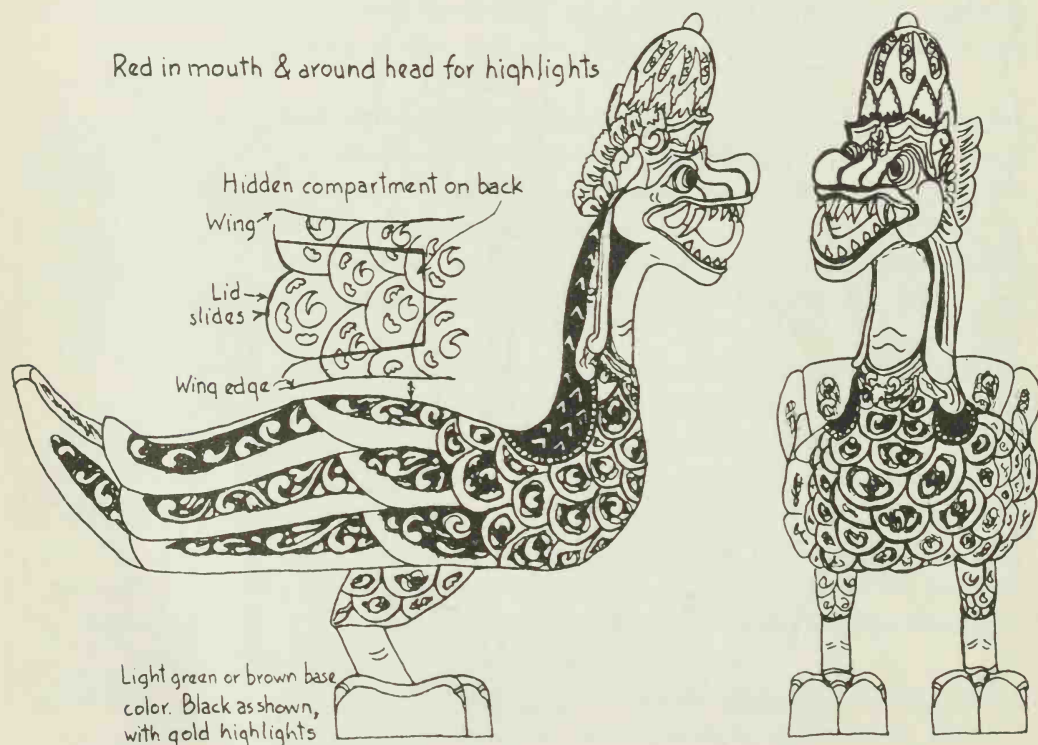 Red in mouth & around head for highlights
Hidden compartment on back
Wing
Lid
slides
Wing edge
Light green or brown base
color. Black as shown,
with gold highlights